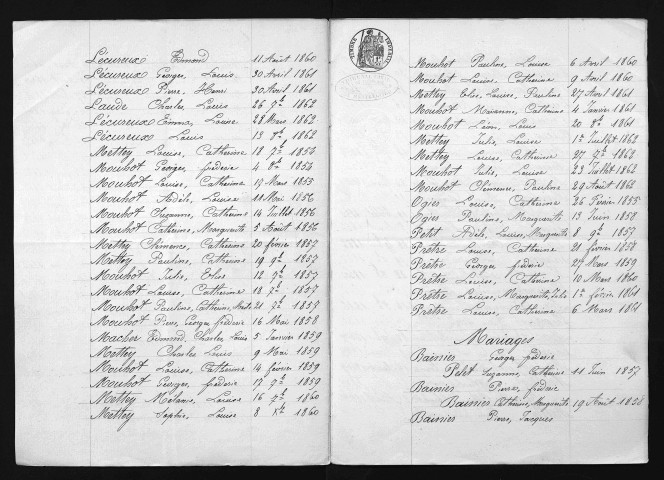 Lécureux Edmond 11 Août 1860
Lécureux Georges, Louis 30 Avril 1861
Lécureux Pierre, Henri 30 Avril 1861
Laude Charles, Louis 26 7bre 1862
Lécureux Emma, Louise 28 Mars 1862
Lécureux Louis 13 8bre 1862
Mettey Louise, Catherine 18 7bre 1853
Mouhot Georges, fréderic 4 8bre 1853
Mouhot Louise, Catherine 17 Mars 1853
Mouhot Adèle, Louise 11 Mai 1856
Mouhot Suzanne, Catherine 14 Juillet 1856
Mouhot Catherine, Marguerite 5 Août 1856
Mettey Clémence, Catherine 20 février 1857
Mettey Pauline, Catherine 19 9bre 1857
Mouhot Jules, Elie 12 7bre 1857
Mouhot Louise, Catherine 18 7bre 1857
Mouhot Pauline, Catherine, 21 7bre 1857
Mouhot Pierre, Georges fréderic 16 Mai 1858
Macler Edmond, Charles, Louis 5 Janvier 1859
Mettey Charles Louis 9 Mai 1859
Mouhot Louise, Catherine 14 février 1859
Mouhot Georges, fréderic 17 9bre 1859
Mettey Mélanie, Louise 16 7bre 1860
Mettey Sophie, Louise 8 Xbre 1860
Mouhot Pauline, Louise 6 Avril 1860
Mouhot Louise, Catherine 9 Avril 1860
Mettey Elise, Louise, Pauline 27 Avril 1861
Mouhot Marianne, Catherine 4 Janvier 1861
Mouhot Léon, Louis 20 8bre 1861
Mettey Julie, Louise 1er Juillet 1862
Mettey Louise, Catherine 27 7bre 1862
Mouhot Julie, Louise 23 Juillet 1862
Mouhot Clémence, Pauline 29 Août 1862
Ogier Louise, Catherine 26 Février 1855
Ogier Pauline, Marguerite 13 Juin 1858
Petit Adèle, Louise, Marguerite 8 9bre 1857
Prêtre Louise, Catherine 21 février 1858
Prêtre Georges fréderic 27 Mars 1859
Prêtre Louise, Catherine 12 Mars 1860
Prêtre Louise, Marguerite, Julie 1er février 1861
Prêtre Louise, Catherine 6 Mars 1861
Mariages
Bainier Georges fréderic
Petit Suzanne, Catherine 11 Juin 1857
Bainier Pierre, fréderic
Bainier Catherine, Marguerite 19 Août 1858
Bainier Pierre, Jacques